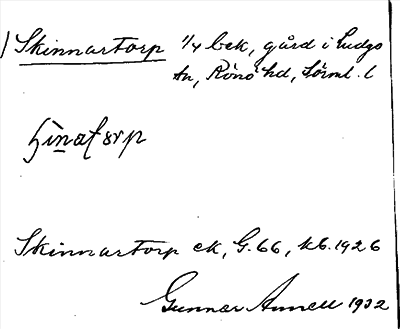 Skinnartorp 1/4 bek, gård i Ludgo
sn, Rönö hd, Sörml. l
Skinnartorp ek, G. 66, kb. 1926
Gunnar Annell 1932